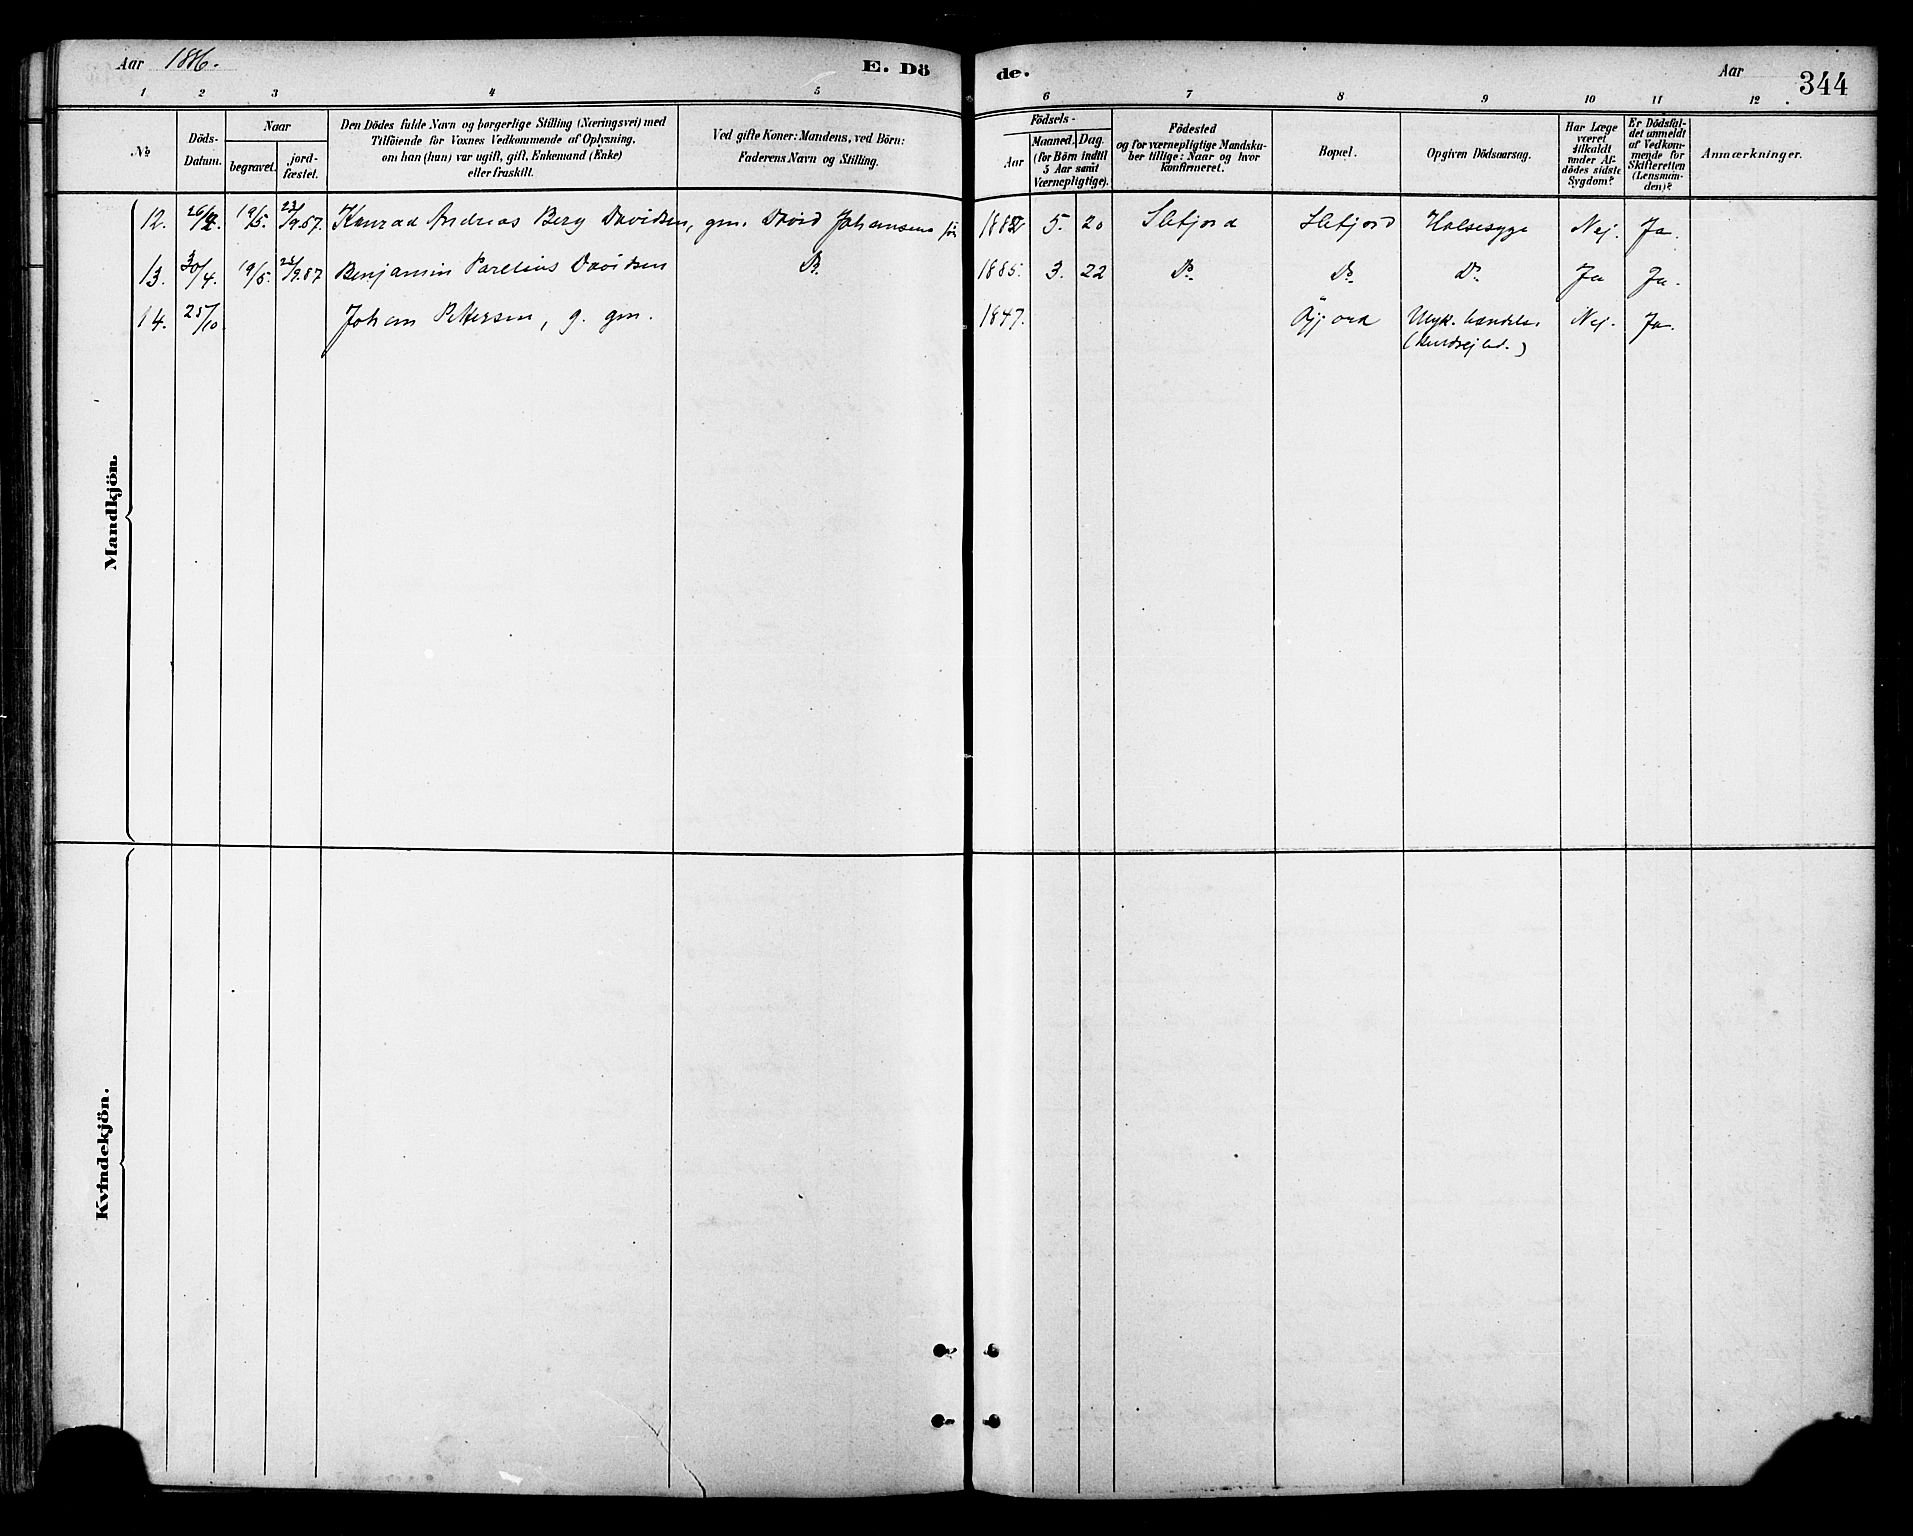 Aar 1886.
E. Dö
de.
Aar
344
1 2 3 4 5 6 7 8 9 10 11 12
No
Döds-
Datum.
Naar
begravet.
jord-
fæstet.
Den Dödes fulde Navn og borgerlige Stilling (Næringsvei) med
Tilföiende for Voxnes Vedkommende af Oplysning,
om han (hun) var ugift, gift, Enkemand (Enke)
eller fraskilt.
Ved gifte Koner: Mandens, ved Börn:
Faderens Navn og Stilling.
Födsels-
Aar
Maaned. Dag.
(for Börn indtil
5 Aar samt
Værnepligtige).
Födested
og for værnepligtige Mandska-
ber tillige: Naar og hvor
konfirmeret.
Bopæl.
Opgiven Dödsaarsag.
Har Læge
været
tilkaldt
under Af-
dödes sidste
Sygdom?
Er Dödsfal-
det anmeldt
af Vedkom-
mende for
Skifteretten
(Lensman-
den)?
Anmærkninger.
Mandkjön.
12. 26/4. 19/5. 23/9.87. Konrad Andreas Berg Davidsen, gm. David Johansens 1882 5. 20 Slefjord Slefjord Halsesyge Nej. Ja.
13. 30/4. 19/5. 23/9.87 Benjamin Parelius Davidsen Do. 1885. 3. 22 Do. Do. Do. Ja Ja.
14. 25/10. Johan Pettersen, g. gm. 1847. Öyjord Ulyk. hændelse Nej. Ja.
Kvindekjön.